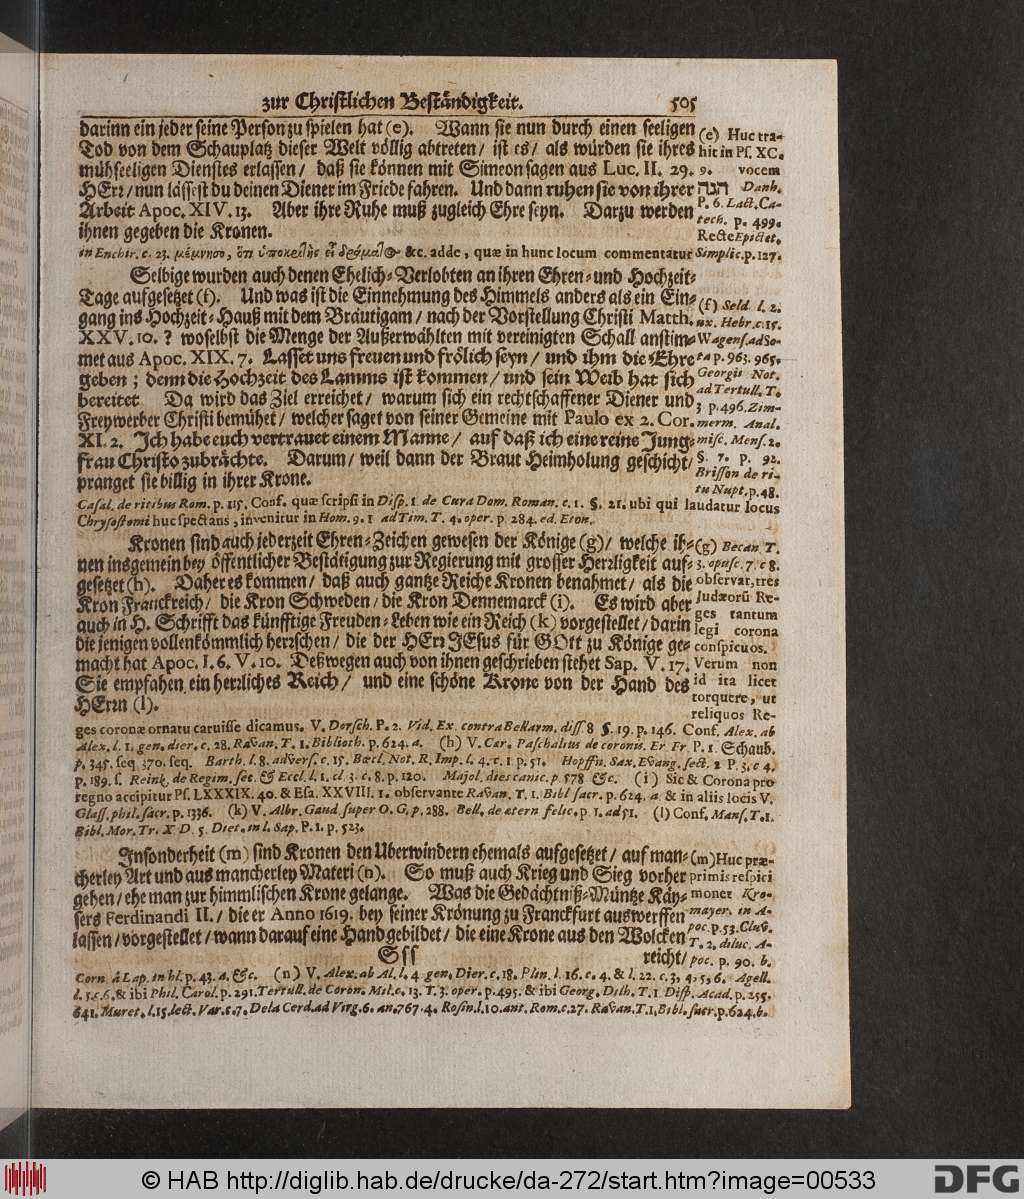 zur Christlichen Beständigkeit. 505
darinn ein jeder seine Person zu spielen hat (e). Wann sie nun durch einen seeligen
Tod von dem Schauplatz dieser Welt völlig abtreten / ist es / als würden sie ihres
mühseeligen Dienstes erlassen / daß sie können mit Simeon sagen aus Luc. II. 29.
HErr / nun lässest du deinen Diener im Friede fahren. Und dann ruhen sie von ihrer
Arbeit Apoc. XIV. 13. Aber ihre Ruhe muß zugleich Ehre seyn. Darzu werden
ihnen gegeben die Kronen.
(e) Huc tra-
hit in Ps. XC.
9. vocem
הגה Danh.
P. 6. Lact. Ca-
tech. p. 499.
Recte Epictet.
in Enchir. c. 23. &c. adde, quæ in hunc locum commentatur Simplic. p. 127.
Selbige wurden auch denen Ehelich-Verlobten an ihren Ehren- und Hochzeit-
Tage aufgesetzet (f). Und was ist die Einnehmung des Himmels anders als ein Ein-
gang ins Hochzeit-Hauß mit dem Bräutigam / nach der Vorstellung Christi Matth.
XXV. 10. ? woselbst die Menge der Außerwählten mit vereinigten Schall anstim-
met aus Apoc. XIX. 7. Lasset uns freuen und frölich seyn / und ihm die Ehre
geben ; denn die Hochzeit des Lamms ist kommen / und sein Weib hat sich
bereitet Da wird das Ziel erreichet / warum sich ein rechtschaffener Diener und
Freywerber Christi bemühet / welcher saget von seiner Gemeine mit Paulo ex 2. Cor.
XI. 2. Ich habe euch vertrauet einem Manne / auf daß ich eine reine Jung-
frau Christo zubrächte. Darum / weil dann der Braut Heimholung geschicht /
pranget sie billig in ihrer Krone.
(f) Seld. l. 2.
ux. Hebr. c. 15.
Wagens. ad So-
ta p. 963. 965.
Georgii Not.
ad Tertull. T.
3 p. 496. Zim-
merm. Anal.
misc. Mens. 2.
§. 7. p. 92.
Brisson de ri-
tu Nupt. p. 48.
Casal. de ritibus Rom. p. 115. Conf. quæ scripsi in Disp. 1. de Cura Dom. Roman. c. 1. §. 21. ubi qui laudatur locus
Chrysostomi huc spectans, invenitur in Hom. 9. 1 ad Tim. T. 4. oper. p. 284. ed. Eton.
Kronen sind auch jederzeit Ehren-Zeichen gewesen der Könige (g) / welche ih-
nen insgemein bey öffentlicher Bestätigung zur Regierung mit grosser Herrligkeit auf-
gesetzet (h). Daher es kommen / daß auch gantze Reiche Kronen benahmet / als die
Kron Franckreich / die Kron Schweden / die Kron Dennemarck (i). Es wird aber
auch in H. Schrifft das künfftige Freuden-Leben wie ein Reich (k) vorgestellet / darin
diejenigen vollenkömmlich herrschen / die der HErr JEsus für GOtt zu Könige ge-
macht hat Apoc. I. 6. V. 10. Deßwegen auch von ihnen geschrieben stehet Sap. V. 17.
Sie empfahen ein herrliches Reich / und eine schöne Krone von der Hand des
HErrn (l).
(g) Becan T.
3. opusc. 7. c 8.
observat, tres
Judæorũ Re-
ges tantum
legi corona
conspicuos.
Verum non
id ita licet
torquere, ut
reliquos Re-
ges coronæ ornatu caruisse dicamus. V. Dorsch. P. 2. Vid. Ex. contra Bellarm. diss 8 §. 19. p. 146. Conf. Alex. ab
Alex. l. 1. gen. dier. c. 28. Ravan. T. 1. Biblioth. p. 624. a. (h) V. Car. Paschalius de coronis. Er. Fr. P. 1 Schaub.
p. 345. seq 370. seq. Barth. l. 8. advers. c. 15. Bœcl. Not. R. Imp. l. 4. c. 1 p. 51. Hopffn. Sax. Evang. sect. 2 P. 3. c 4.
p. 189. s. Reink. de Regim. sec. & Eccl. l. 1. cl 3. c. 8. p. 120. Majol. dies canic. p 578 &c. (i) Sic & Corona pro
regno accipitur Ps. LXXXIX. 40. & Esa. XXVIII. 1. observante Ravan. T. 1. Bibl sacr. p. 624. a & in aliis locis V.
Glass. phil. sacr. p. 1336. (k) V. Albr. Gaud. super O. G. p. 288. Bell. de ætern felic. p 1. ad 51. (l) Conf. Mans. T. 1.
Bibl. Mor. Tr. X D. 5. Diet. in l. Sap. P. 1. p. 523.
Insonderheit (m) sind Kronen den Uberwindern ehemals aufgesetzet / auf man-
cherley Art und aus mancherley Materi (n). So muß auch Krieg und Sieg vorher
gehen / ehe man zur himmlischen Krone gelange. Was die Gedächtniß-Müntze Käy-
sers Ferdinandi II. / die er Anno 1619. bey seiner Krönung zu Franckfurt auswerffen
lassen / vorgestellet / wann darauf eine Hand gebildet / die eine Krone aus den Wolcken
Sss reicht /
(m) Huc præ-
primis respici
monet Kro-
mayer. in A-
poc. p. 53. Cluv.
T. 2. diluc. A-
poc. p. 90. b.
Corn. à Lap. in hl. p. 43. a. &c. (n) V. Alex. ab Al. l. 4 gen. Dier. c. 18. Plin. l. 16. c. 4. & l. 22. c. 3, 4, 5, 6. Agell.
l. 5. c. 6. & ibi Phil. Carol. p. 291. Tertull. de Coron. Mil. c. 13. T. 3. oper. p. 495. & ibi Georg. Dilh. T. 1 Disp. Acad. p. 255.
641. Muret. l. 15. lect. Var. c. 7. De la Cerd. ad Virg. 6. an. 767. 4. Rosin. l. 10. ant. Rom. c. 27. Ravan. T. 1. Bibl. sacr. p. 624. b.
© HAB http://diglib.hab.de/drucke/da-272/start.htm?image=00533
DFG